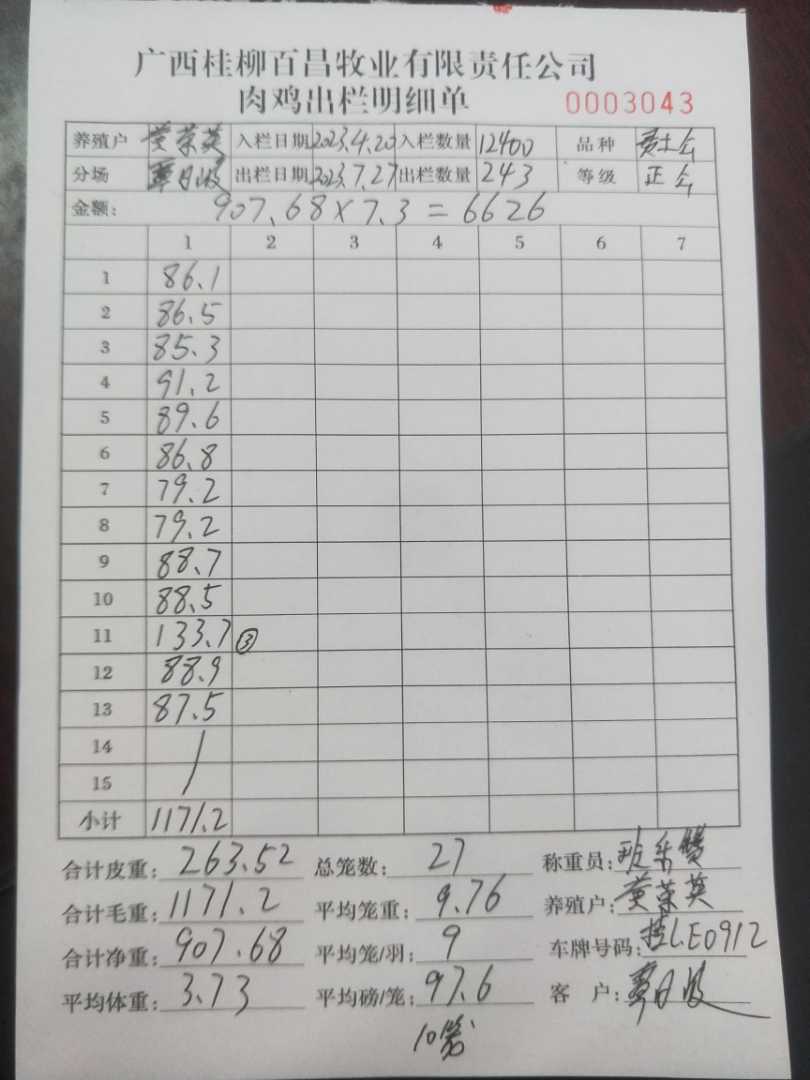 广西桂柳百昌牧业有限责任公司
肉鸡出栏明细单 0003043
养殖户 黄荣英 入栏日期 2023.4.20 入栏数量 12400 品种
分场 覃日波 出栏日期 2023.7.27 出栏数量 243 等级 正
金额: 907.68×7.3=6626
1 2 3 4 5 6 7
1 86.1
2 86.5
3 85.3
4 91.2
5 89.6
6 86.8
7 79.2
8 79.2
9 88.7
10 88.5
11 133.7 ③
12 88.9
13 87.5
14 /
15
小计 1171.2
合计皮重: 263.52 总笼数: 27 称重员:
合计毛重: 1171.2 平均笼重: 9.76 养殖户: 黄荣英
合计净重: 907.68 平均笼/羽: 9 车牌号码: 桂LE0912
平均体重: 3.73 平均磅/笼: 97.6 客 户: 覃日波
10笼